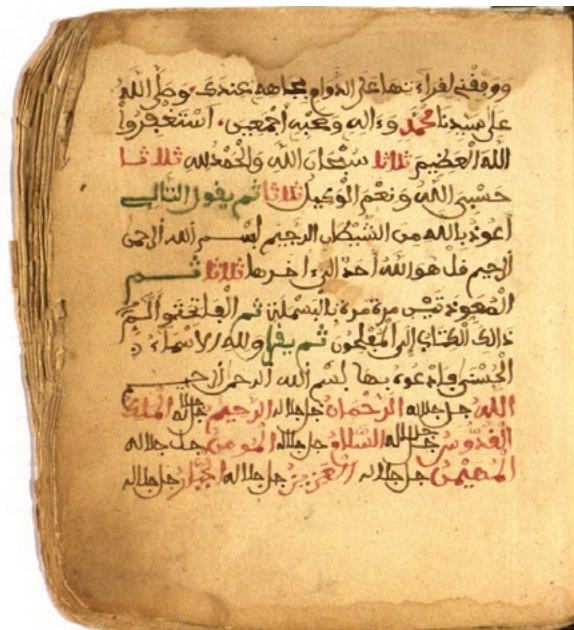 ووفقني لقراءتها على الدوام بجاهه عندك وصلى الله
على سيدنا محمد وءاله وصحبه أجمعين، أستغفروا
الله العظيم ثلاثا سبحان الله والحمد لله ثلاثا
حسبي الله ونعم الوكيل ثلاثا ثم يقول التالي
أعوذ بالله من الشيطان الرجيم بسم الله الرحمن
الرحيم قل هو الله أحد إلى ءاخرها ثلاثا ثم
المعوذتين مرة مرة بالبسملة ثم الفاتحة والم
ذالك الكتاب إلى المفلحون ثم يقرأ ولله الاسماء
الحسنى فادعوه بها بسم الله الرحمن الرحيم
الله جل جلاله الرحمان جل جلاله الرحيم جل جلاله الملك
القدوس جل جلاله السلام جل جلاله المومن جل جلاله
المهيمن جل جلاله العزيز جل جلاله الجبار جل جلاله